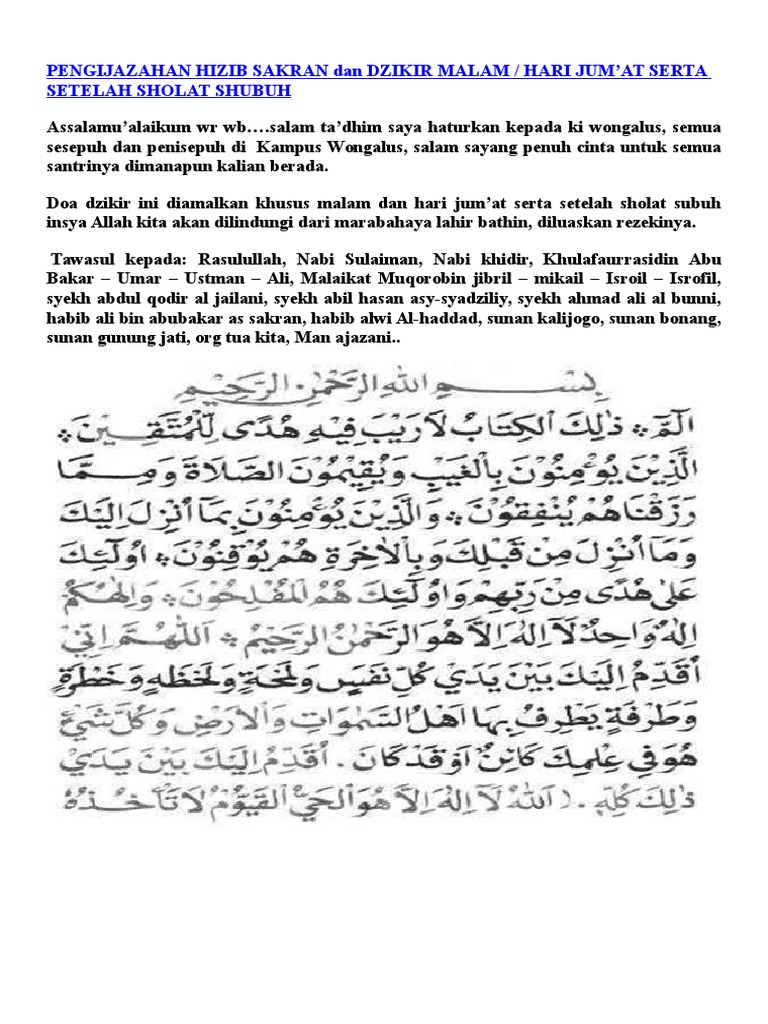 PENGIJAZAHAN HIZIB SAKRAN dan DZIKIR MALAM / HARI JUM’AT SERTA
SETELAH SHOLAT SHUBUH
Assalamu’alaikum wr wb….salam ta’dhim saya haturkan kepada ki wongalus, semua
sesepuh dan penisepuh di Kampus Wongalus, salam sayang penuh cinta untuk semua
santrinya dimanapun kalian berada.
Doa dzikir ini diamalkan khusus malam dan hari jum’at serta setelah sholat subuh
insya Allah kita akan dilindungi dari marabahaya lahir bathin, diluaskan rezekinya.
Tawasul kepada: Rasulullah, Nabi Sulaiman, Nabi khidir, Khulafaurrasidin Abu
Bakar – Umar – Ustman – Ali, Malaikat Muqorobin jibril – mikail – Isroil – Isrofil,
syekh abdul qodir al jailani, syekh abil hasan asy-syadziliy, syekh ahmad ali al bunni,
habib ali bin abubakar as sakran, habib alwi Al-haddad, sunan kalijogo, sunan bonang,
sunan gunung jati, org tua kita, Man ajazani..
بِسْمِ اللهِ الرَّحْمٰنِ الرَّحِيْمِ
الٓمّٓ * ذٰلِكَ الْكِتَابُ لَارَيْبَ فِيْهِ هُدًى لِّلْمُتَّقِيْنَ *
الَّذِيْنَ يُؤْمِنُوْنَ بِالْغَيْبِ وَيُقِيْمُوْنَ الصَّلَاةَ وَمِمَّا
رَزَقْنَاهُمْ يُنْفِقُوْنَ * وَالَّذِيْنَ يُؤْمِنُوْنَ بِمَآ اُنْزِلَ اِلَيْكَ
وَمَآ اُنْزِلَ مِنْ قَبْلِكَ وَبِالْاٰخِرَةِ هُمْ يُوْقِنُوْنَ * اُولٰٓئِكَ
عَلٰى هُدًى مِنْ رَبِّهِمْ وَاُولٰٓئِكَ هُمُ الْمُفْلِحُوْنَ * وَاِلٰهُكُمْ
اِلٰهٌ وَاحِدٌ لَآ اِلٰهَ اِلَّا هُوَ الرَّحْمٰنُ الرَّحِيْمُ * اَللّٰهُمَّ اِنِّيْ
اُقَدِّمُ اِلَيْكَ بَيْنَ يَدَيْ كُلِّ نَفَسٍ وَلَمْحَةٍ وَلَحْظَةٍ وَخَطْرَةٍ
وَطَرْفَةٍ يَطْرِفُ بِهَا اَهْلُ السَّمٰوَاتِ وَالْاَرْضِ وَكُلُّ شَيْءٍ
هُوَ فِي عِلْمِكَ كَائِنٌ اَوْ قَدْ كَانَ . اُقَدِّمُ اِلَيْكَ بَيْنَ يَدَيْ
ذٰلِكَ كُلِّهِ . ( اَللهُ لَآ اِلٰهَ اِلَّا هُوَ الْحَيُّ الْقَيُّوْمُ لَا تَأْخُذُهُ